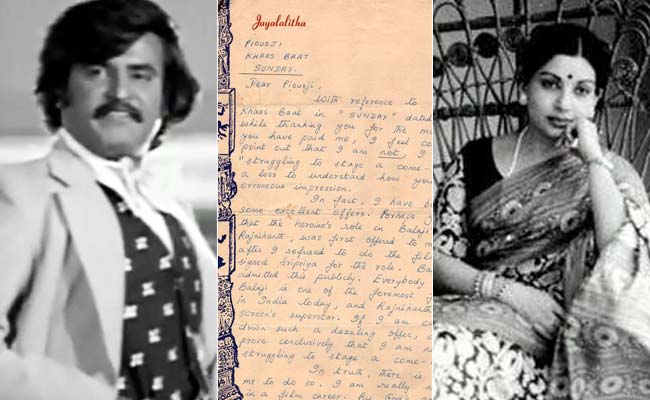 Jayalalitha
PIOUSJI
KHAAS BAAT
SUNDAY.
Dear Piousji,
With reference to
Khaas Baat in "SUNDAY" dated
while thanking you for the
you have paid me, I feel
point out that I am not, I
"struggling to stage a come-
a loss to understand how you
erroneous impression.
In fact, I have
some excellent offers. Perhaps
that the heroine's role in Balaji
Rajnikanth, was first offered to
after I refused to do the
signed Sripriya for the role.
admitted this publicly. Everybody
Balaji is one of the foremost
in India today, and Rajnikanth
screen's superstar. If I am
down such a dazzling offer,
prove conclusively that I am
struggling to stage a come-
In truth, there is
me to do so. I am really
in a film career. By God's